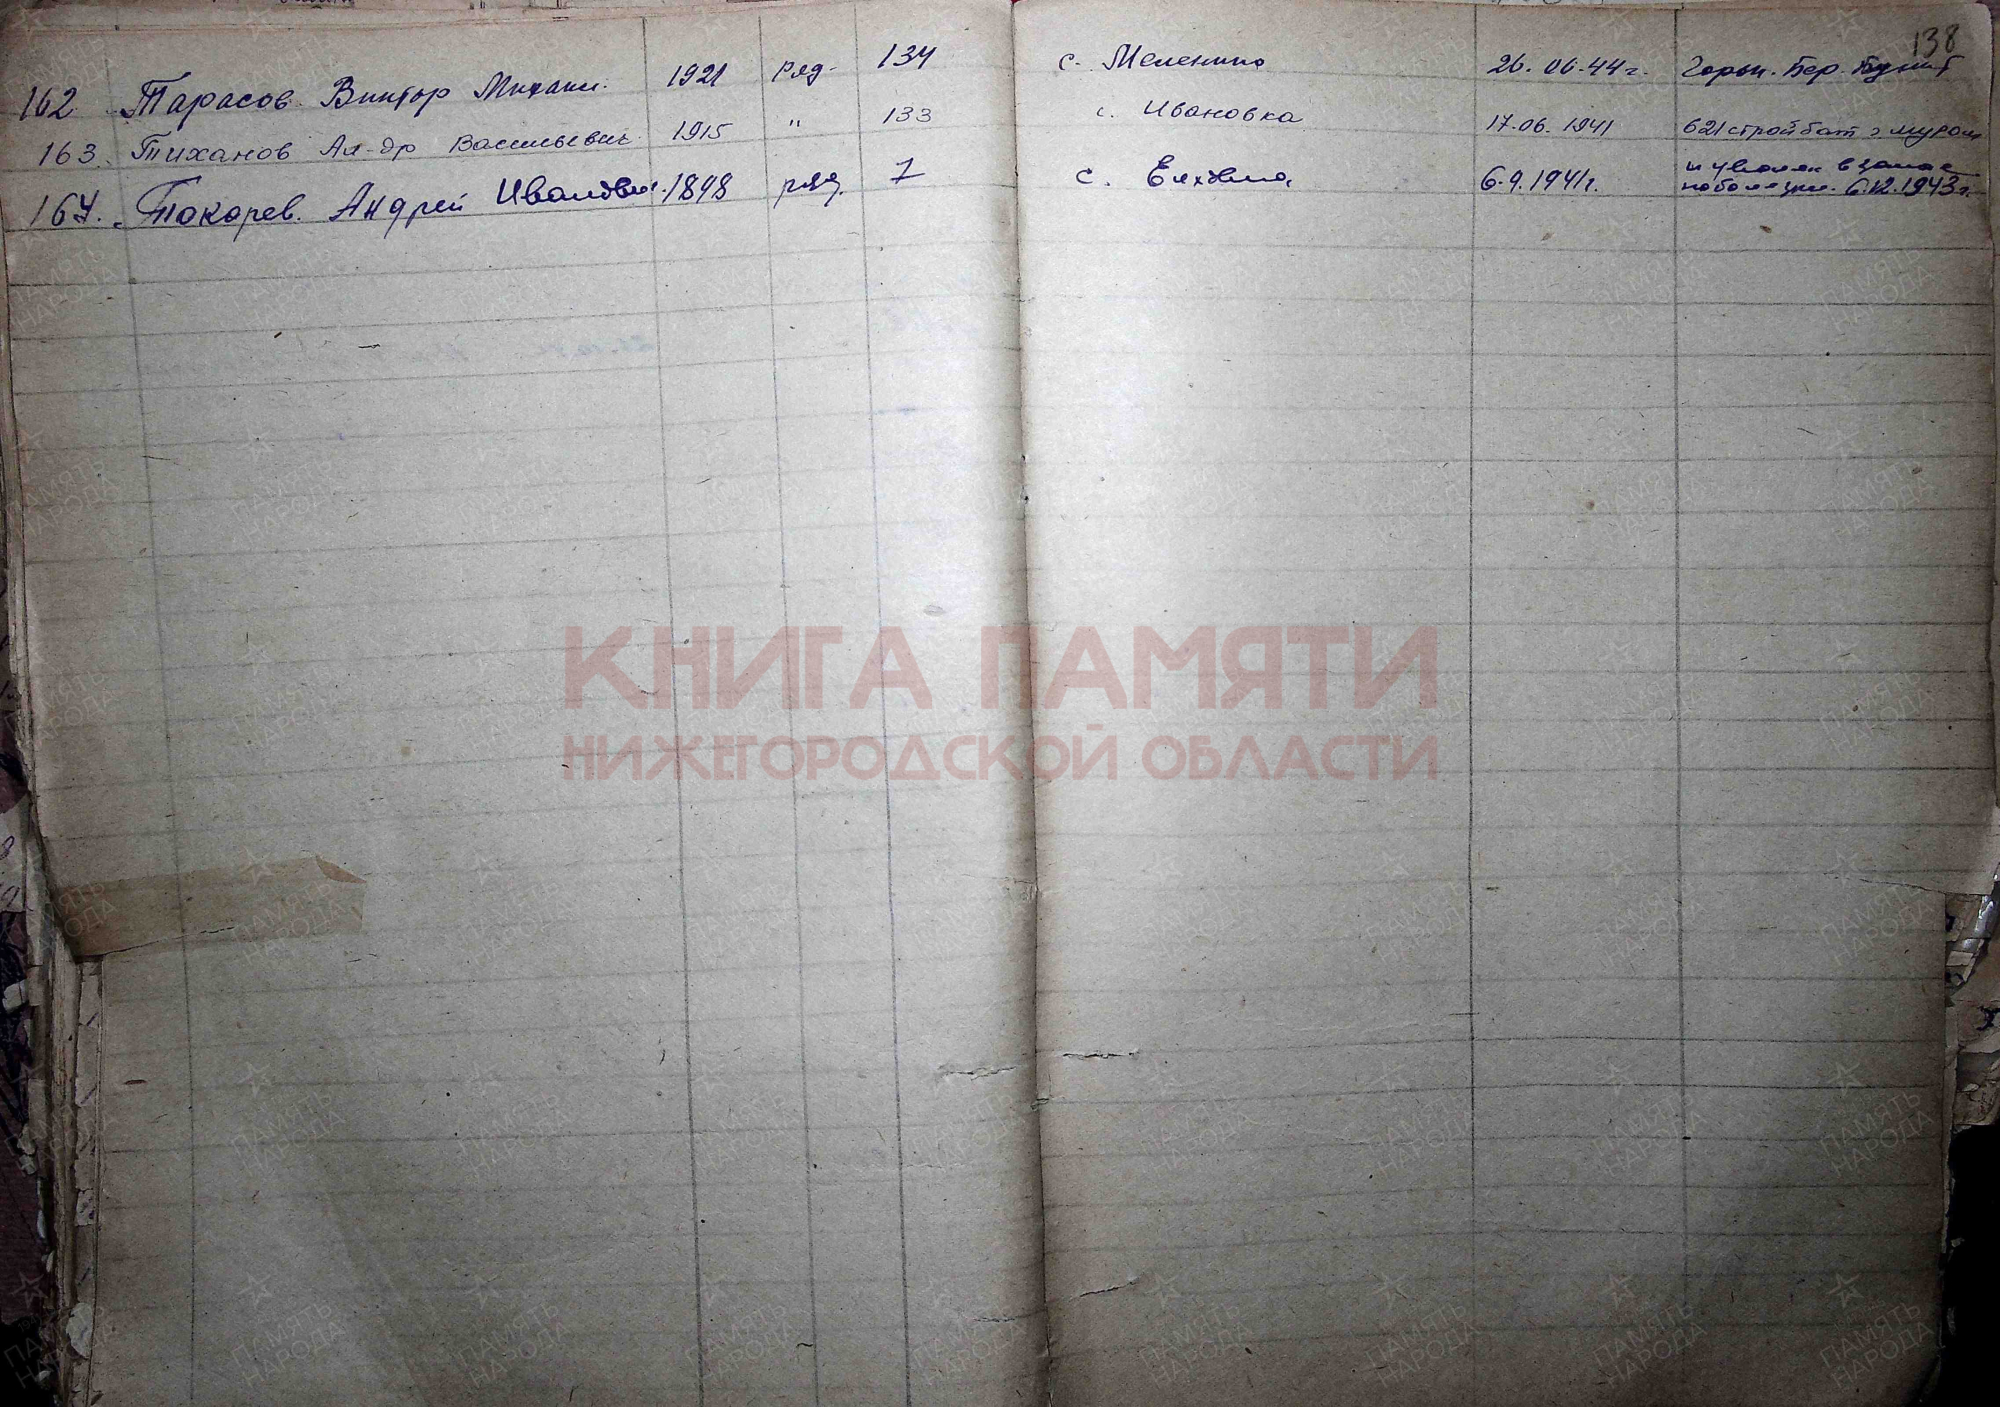 138
162 Тарасов Виктор Михаил. 1921 ряд. 134 с. Меленино 26.06.44 г. Горьк. Пер. Пункт
163. Тиханов Ал-др Васильевич 1915 " 133 с. Ивановка 17.06.1941 621 стройбат г. Муром
164. Токарев Андрей Иванович 1898 ряд. 7 с. 6.9.1941г. и уволен в запас
по болезни. 6.12.1943 г.
КНИГА ПАМЯТИ
НИЖЕГОРОДСКОЙ ОБЛАСТИ
ПАМЯТЬ
НАРОДА